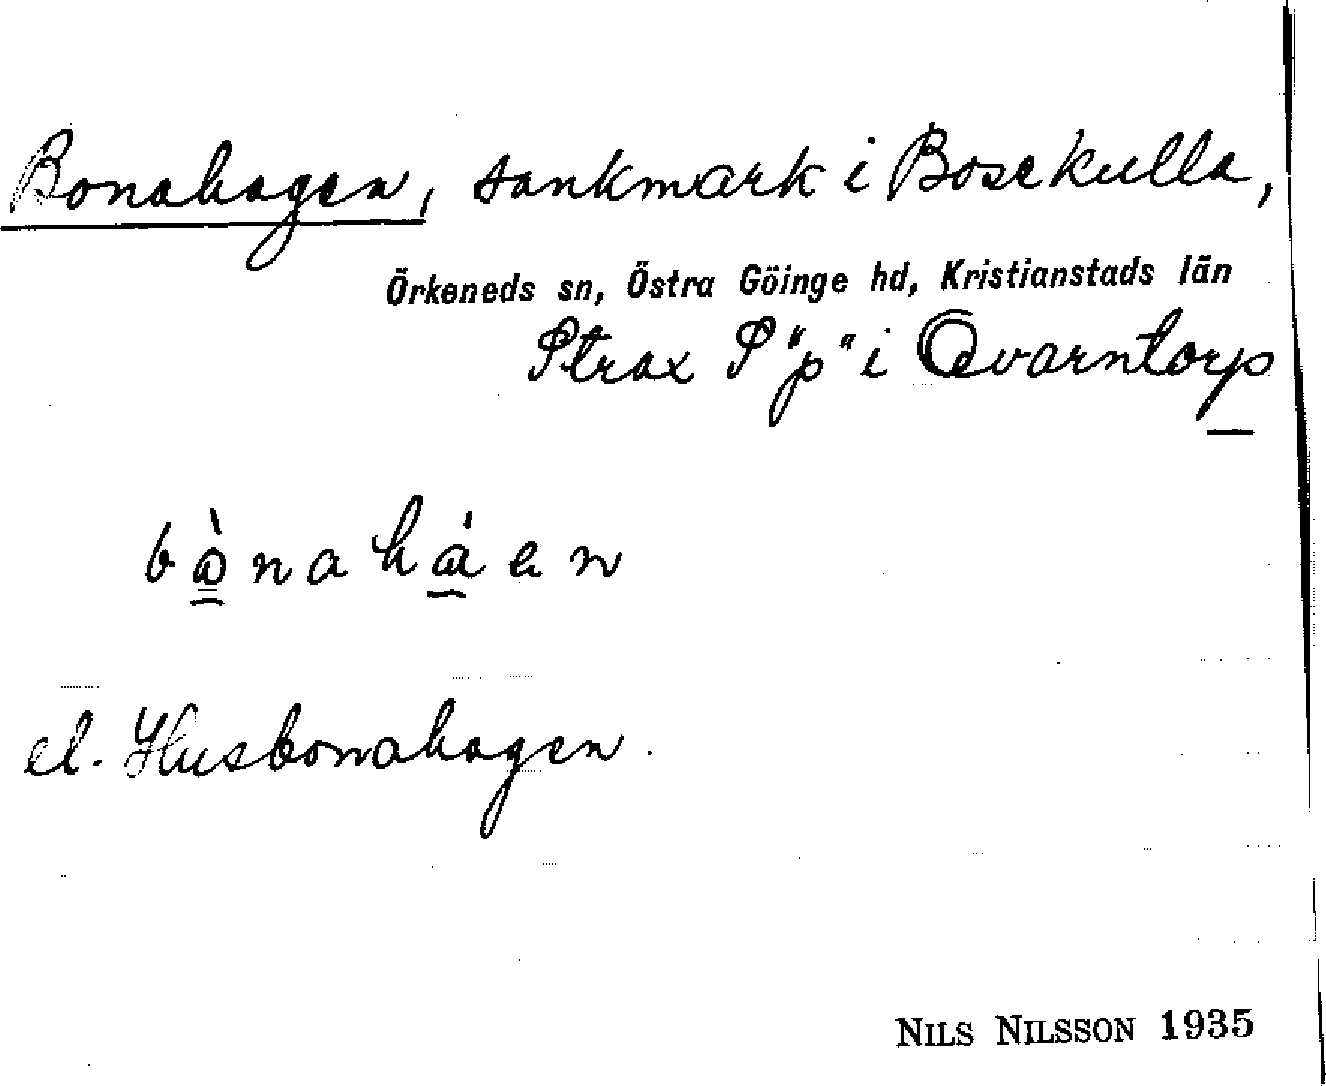 Bonahagen, sankmark i Bosekulla,
Örkeneds sn, Östra Göinge hd, Kristianstads län
Strax S "p" i Qvarntorp
bònaháen
el. Husbonahagen.
NILS NILSSON 1935